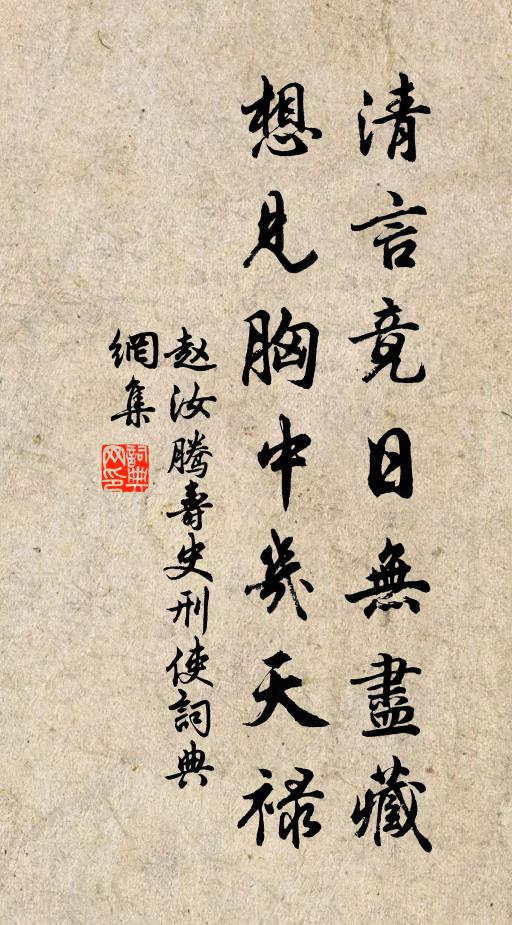 清言竟日無盡藏
想見胸中幾天禄
赵汝腾壽史刑使詞典
網集
詞典
网印